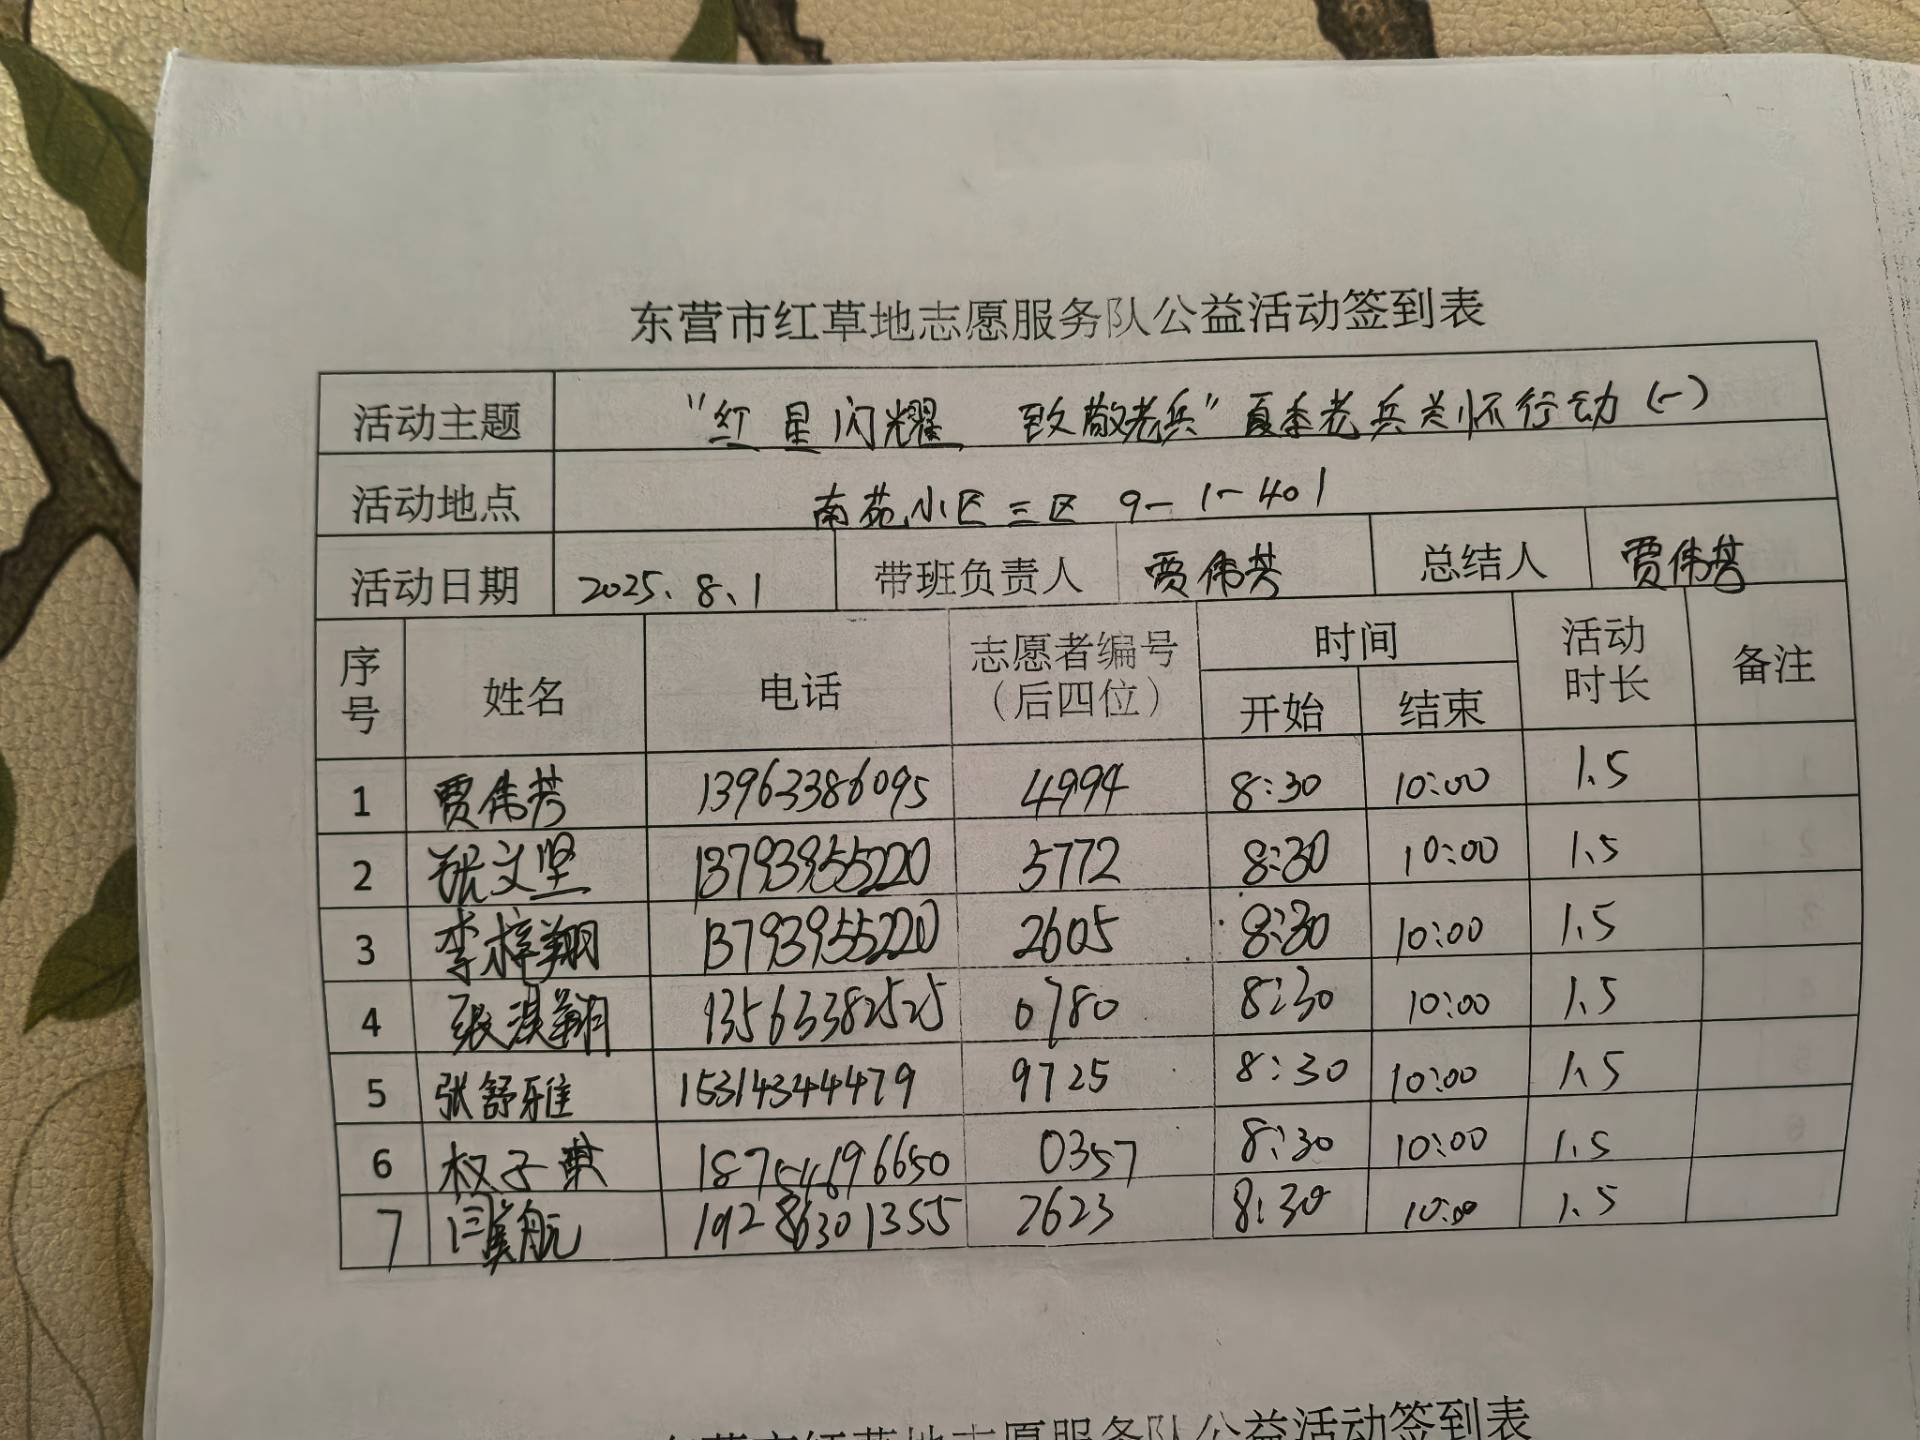 东营市红草地志愿服务队公益活动签到表
活动主题 “红星闪耀 致敬老兵”夏季老兵关怀行动(一)
活动地点 南苑小区三区 9-1-401
活动日期 2025.8.1 带班负责人 贾伟芳 总结人 贾伟芳
序号 姓名 电话 志愿者编号（后四位） 时间 开始 结束 活动时长 备注
1 贾伟芳 13963386095 4994 8:30 10:00 1.5
2 张文坚 13793955220 5772 8:30 10:00 1.5
3 李梓翔 13793955220 2605 8:30 10:00 1.5
4 张淇翔 13563382525 0780 8:30 10:00 1.5
5 张舒雅 15314344479 9725 8:30 10:00 1.5
6 权子琪 18754696650 0357 8:30 10:00 1.5
7 航 19286301355 2623 8:30 10:00 1.5
东营市红草地志愿服务队公益活动签到表